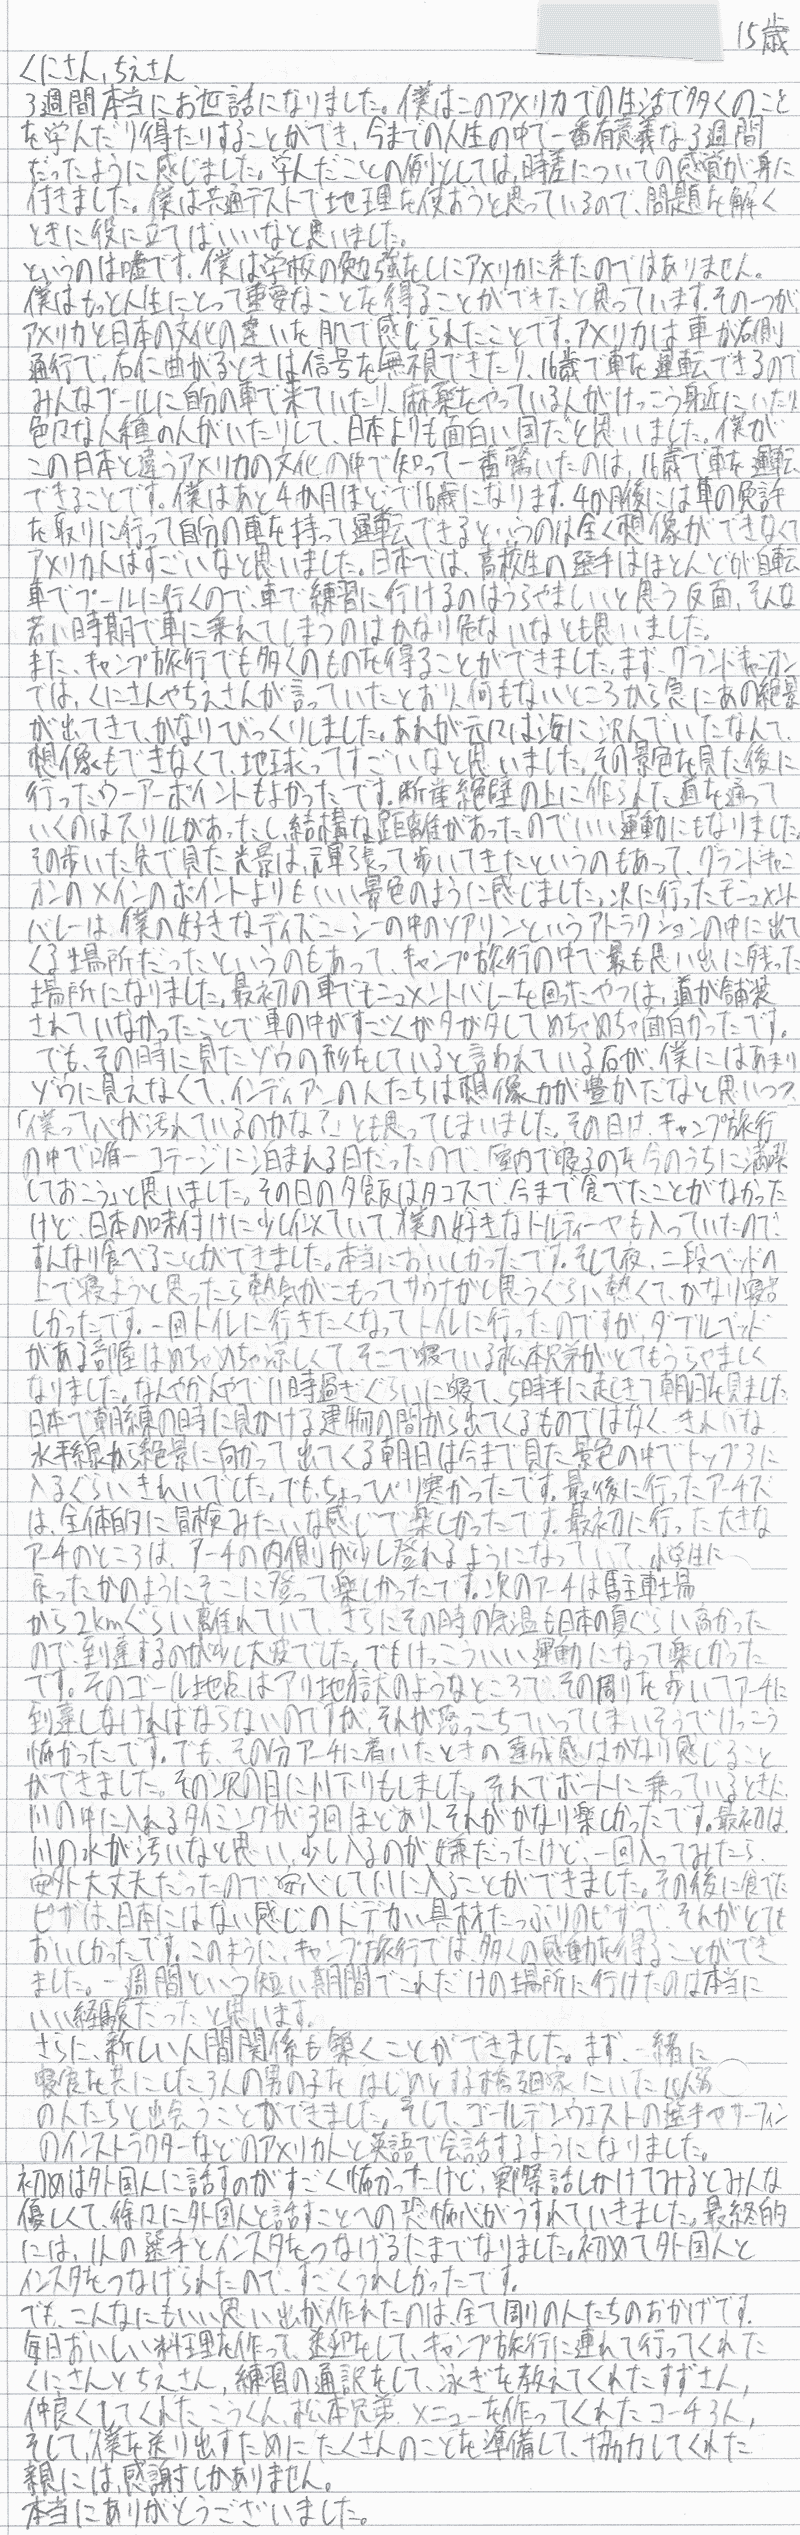 15歳
くにさん,ちえさん
3週間本当にお世話になりました。僕はこのアメリカでの生活で多くのこと
を学んだり得たりすることができ、今までの人生の中で一番有意義な3週間
だったように感じました。学んだことの例としては、時差についての感覚が身に
付きました。僕は共通テストで地理を使おうと思っているので、問題を解く
ときに役に立てばいいなと思いました。
というのは嘘です。僕は学校の勉強をしにアメリカに来たのではありません。
僕はもっと人生にとって重要なことを得ることができたと思っています。その一つが、
アメリカと日本の文化の違いを肌で感じられたことです。アメリカは車が右側
通行で、右に曲がるときは信号を無視できたり、16歳で車を運転できるので
みんなプールに自分の車で来ていたり、麻薬をやっている人がけっこう身近にいたり
色々な人種の人がいたりして、日本よりも面白い国だと思いました。僕が
この日本と違うアメリカの文化の中で知って一番驚いたのは、16歳で車を運転
できることです。僕はあと4か月ほどで16歳になります。4か月後には車の免許
を取りに行って自分の車を持って運転できるというのは全く想像ができなくて
アメリカ人はすごいなと思いました。日本では、高校生の選手はほとんどが自転
車でプールに行くので、車で練習に行けるのはうらやましいと思う反面、そんな
若い時期で車に乗れてしまうのはかなり危ないなとも思いました。
また、キャンプ旅行でも多くのものを得ることができました。まず、グランドキャニオン
では、くにさんやちえさんが言っていたとおり、何もないところから急にあの絶景
が出てきて、かなりびっくりしました。あれが元々は海に沈んでいたなんて、
想像もできなくて、地球ってすごいなと思いました。その景色を見た後に
行ったウーアーポイントもよかったです。断崖絶壁の上に作られた道を通って
いくのはスリルがあったし、結構な距離があったのでいい運動にもなりました。
その歩いた先で見た光景は、頑張って歩いてきたというのもあって、グランドキャニ
オンのメインのポイントよりもいい景色のように感じました。次に行ったモニュメント
バレーは、僕の好きなディズニーシーの中のソアリンというアトラクションの中に出て
くる場所だったというのもあって、キャンプ旅行の中で最も思い出に残った
場所になりました。最初の車でモニュメントバレーを回ったやつは、道が舗装
されていなかったことで車の中がすごくガタガタしてめちゃめちゃ面白かったです。
でも、その時に見たゾウの形をしていると言われている石が、僕にはあまり
ゾウに見えなくて、インディアンの人たちは想像力が豊かだなと思いつつ、
「僕って心が汚れているのかな?」とも思ってしまいました。その日は、キャンプ旅行
の中で唯一コテージに泊まれる日だったので、「室内で寝るのを今のうちに満喫
しておこう」と思いました。その日の夕飯はタコスで、今まで食べたことがなかった
けど、日本の味付けに少し似ていて、僕の好きなトルティーヤも入っていたので、
すんなり食べることができました。本当においしかったです。そして夜、二段ベッドの
上で寝ようと思ったら熱気がこもってサウナかと思うぐらい熱くて、かなり寝苦
しかったです。一回トイレに行きたくなってトイレに行ったのですが、ダブルベッド
がある部屋はめちゃめちゃ涼しくて、そこで寝ている松本兄弟がとてもうらやましく
なりました。なんやかんやで11時過ぎぐらいに寝て、5時半に起きて朝日を見ました
日本で朝練の時に見かける建物の間から出てくるものではなく、きれいな
水平線から絶景に向かって出てくる朝日は今まで見た景色の中でトップ3に
入るぐらいきれいでした。でも、ちょっぴり寒かったです。最後に行ったアーチズ
は、全体的に冒検みたいな感じで楽しかったです。最初に行った大きな
アーチのところは、アーチの内側が少し登れるようになっていて、小学生に
戻ったかのようにそこに登って楽しかったです。次のアーチは駐車場
から2kmぐらい離れていて、さらにその時の気温も日本の夏ぐらい高かった
ので、到達するのが少し大変でした。でもけっこういい運動になって楽しかった
です。そのゴール地点はアリ地獄のようなところで、その周りを歩いてアーチに
到達しなければならないのですが、それが落っこちていってしまいそうでけっこう
怖かったです。でも、その分アーチに着いたときの達成感はかなり感じること
ができました。その次の日に川下りもしました。それでボートに乗っているときに
川の中に入れるタイミングが3回ほどあり、それがかなり楽しかったです。最初は、
川の水が汚いなと思い、少し入るのが嫌だったけど、一回入ってみたら、
案外大丈夫だったので安心して川に入ることができました。その後に食べた
ピザは、日本にはない感じのドデカい具材たっぷりのピザで、それがとても
おいしかったです。このように、キャンプ旅行では、多くの感動を得ることができ
ました。一週間という短い期間でこれだけの場所に行けたのは本当に
いい経験だったと思います。
さらに、新しい人間関係も築くことができました。まず、一緒に
寝食を共にした3人の男の子をはじめとする 家にいた
の人たちと出会うことができました。そして、ゴールデンウエストの選手やサーフィン
のインストラクターなどのアメリカ人と英語で会話するようになりました。
初めは外国人に話すのがすごく怖かったけど、実際話しかけてみるとみんな
優しくて、徐々に外国人と話すことへの恐怖心がうすれていきました。最終的
には、1人の選手とインスタをつなげるたまでなりました。初めて外国人と
インスタをつなげられたので、すごくうれしかったです。
でも、こんなにもいい思い出が作れたのは、全て周りの人たちのおかげです。
毎日おいしい料理を作って、送迎をして、キャンプ旅行に連れて行ってくれた
くにさんとちえさん,練習の通訳をして、泳ぎを教えてくれたすずさん,
仲良くしてくれたこうくん、松本兄弟、メニューを作ってくれたコーチ3人,
そして、僕を送り出すためにたくさんのことを準備して、協力してくれた
親には、感謝しかありません。
本当にありがとうございました。